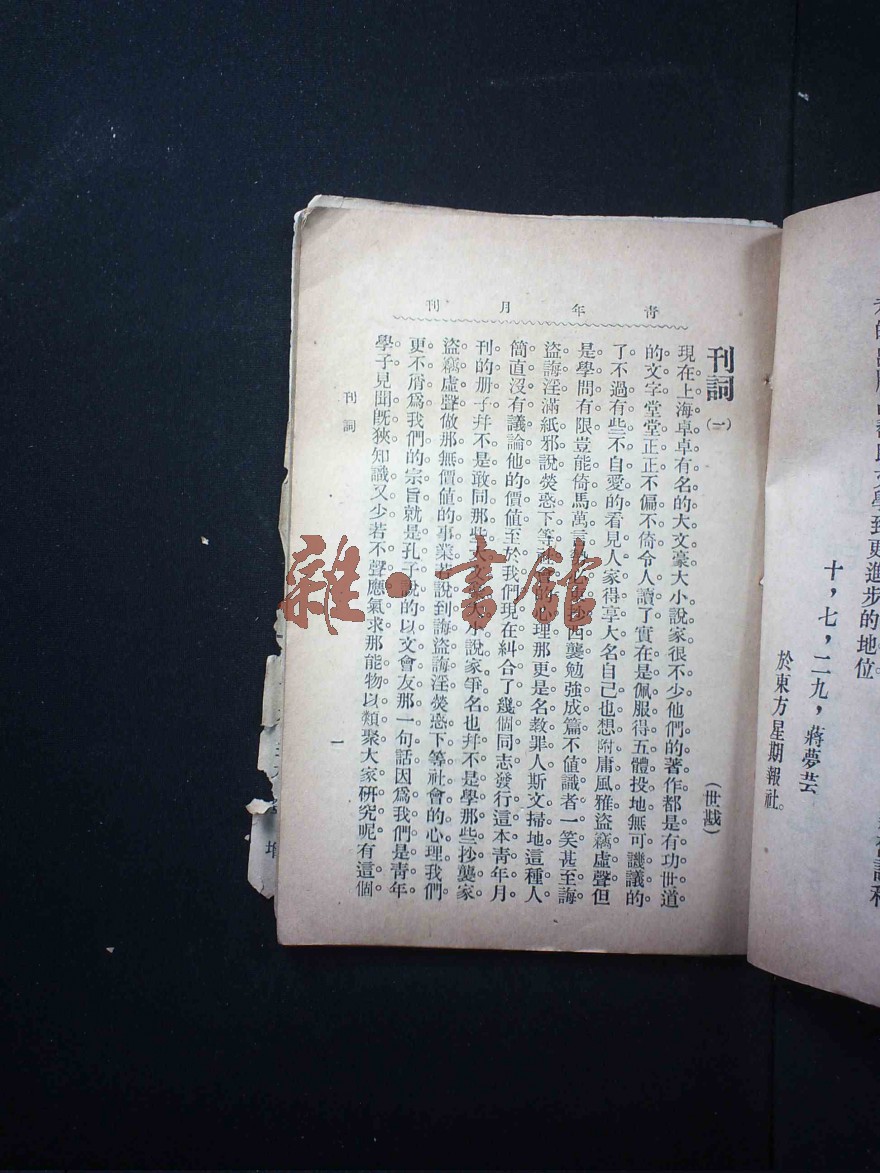 到更進步的地位
十，七，二九，蔣夢芸
於東方星期報社。
青年月刊
刊詞(一)
(世戡)
現在上海卓卓有名的大文豪大小說家很不少他們的著作都是有功世道
的文字堂堂正正不偏不倚令人讀了實在是佩服得五體投地無可譏議的
了不過有些不自愛的看見人家得享大名自己也想附庸風雅盜竊虛聲但
是學問有限豈能倚馬萬言抄西襲勉強成篇不值識者一笑甚至誨
盜誨淫滿紙邪說熒惑下等社會的心理那更是名教罪人斯文掃地這種人
簡直沒有議論他的價值至於我們現在糾合了幾個同志發行這本青年月
刊的册子幷不是敢同那些大文豪大小說家爭名也幷不是學那些抄襲家
盜竊虛聲做那無價值的事業若說到誨盜誨淫熒惑下等社會的心理我們
更不屑爲我們的宗旨就是孔子說的以文會友那一句話因爲我們是靑年
學子見聞旣狹知識又少若不聲應氣求那能物以類聚大家硏究呢有這個
刊詞
一
雜·書館